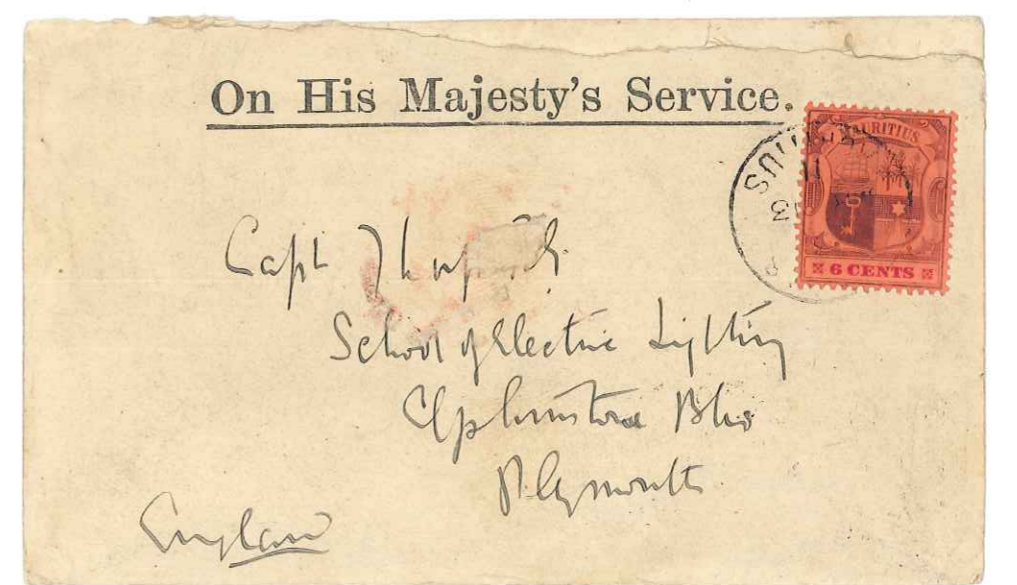 On His Majesty's Service.
MAURITIUS
6 CENTS
MAURITIUS
Capt
School of Electric Lighting
Elphinstone Bks
Plymouth
England